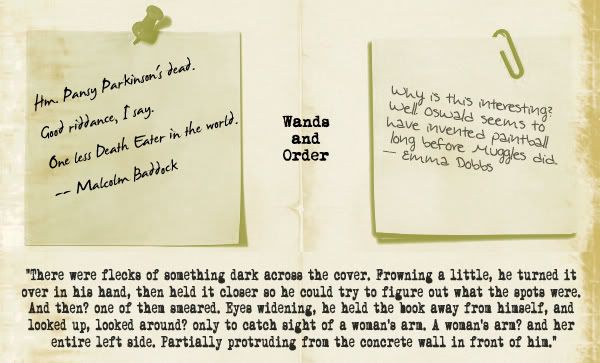 Hm. Pansy Parkinson's dead.
Good riddance, I say.
One less Death Eater in the world.
-- Malcolm Baddock
Wands
and
Order
Why is this interesting?
Well Oswald seems to
have invented paintball
long before Muggles did.
— Emma Dobbs
"There were flecks of something dark across the cover. Frowning a little, he turned it
over in his hand, then held it closer so he could try to figure out what the spots were.
And then? one of them smeared. Eyes widening, he held the book away from himself, and
looked up, looked around? only to catch sight of a woman's arm. A woman's arm? and her
entire left side. Partially protruding from the concrete wall in front of him."